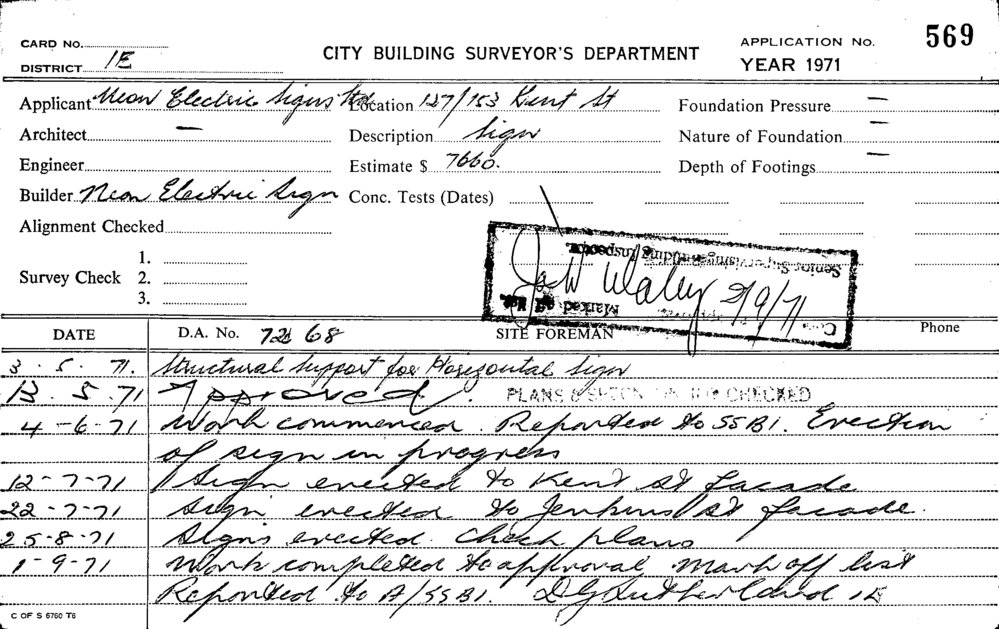 CARD No.
DISTRICT 1E
CITY BUILDING SURVEYOR'S DEPARTMENT
APPLICATION No. 569
YEAR 1971
Applicant Neon Electric Signs Ltd Location 127/153 Kent St Foundation Pressure —
Architect — Description Sign Nature of Foundation —
Engineer Estimate $ 7660. Depth of Footings —
Builder Neon Electric Sign Conc. Tests (Dates)
Alignment Checked
Survey Check 1.
2.
3.
Senior Supervising Building Inspector
Marked off list
2/9/71
DATE D.A. No. 68 SITE FOREMAN Phone
3.5.71. Structural support for Horizontal Sign
13.5.71 Approved. PLANS & CHECKED
4-6-71 Work commenced. Reported to SSBI. Erection
of sign in progress
12-7-71 Sign erected to Kent St facade
22-7-71 Sign erected to Jenkins St facade.
25-8-71 Signs erected. Check plans
1-9-71 Work completed to approval Mark off list
Reported to A/SSBI. D G Sutherland 1E
C OF S 6760 T6